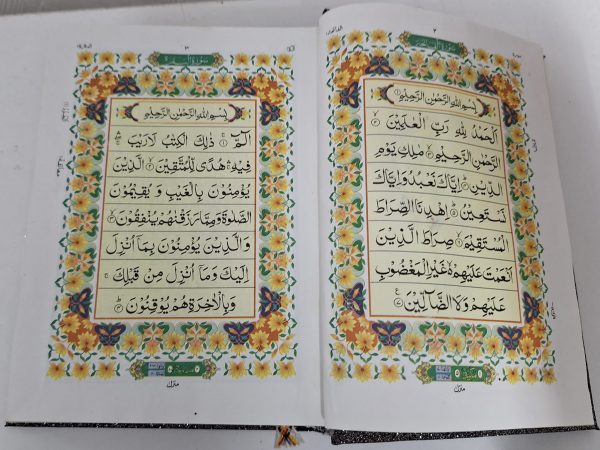 بِسْمِ اللهِ الرَّحْمٰنِ الرَّحِيْمِ
اَلْحَمْدُ لِلّٰهِ رَبِّ الْعٰلَمِيْنَ
الرَّحْمٰنِ الرَّحِيْمِ مٰلِكِ يَوْمِ
الدِّيْنِ اِيَّاكَ نَعْبُدُ وَاِيَّاكَ
نَسْتَعِيْنُ اِهْدِنَا الصِّرَاطَ
الْمُسْتَقِيْمَ صِرَاطَ الَّذِيْنَ
اَنْعَمْتَ عَلَيْهِمْ غَيْرِ الْمَغْضُوْبِ
عَلَيْهِمْ وَلَا الضَّآلِّيْنَ
منزل
بِسْمِ اللهِ الرَّحْمٰنِ الرَّحِيْمِ
الٓمّٓ ذٰلِكَ الْكِتٰبُ لَا رَيْبَ
فِيْهِ هُدًى لِّلْمُتَّقِيْنَ الَّذِيْنَ
يُؤْمِنُوْنَ بِالْغَيْبِ وَيُقِيْمُوْنَ
الصَّلٰوةَ وَمِمَّا رَزَقْنٰهُمْ يُنْفِقُوْنَ
وَالَّذِيْنَ يُؤْمِنُوْنَ بِمَآ اُنْزِلَ
اِلَيْكَ وَمَآ اُنْزِلَ مِنْ قَبْلِكَ
وَبِالْاٰخِرَةِ هُمْ يُوْقِنُوْنَ
منزل